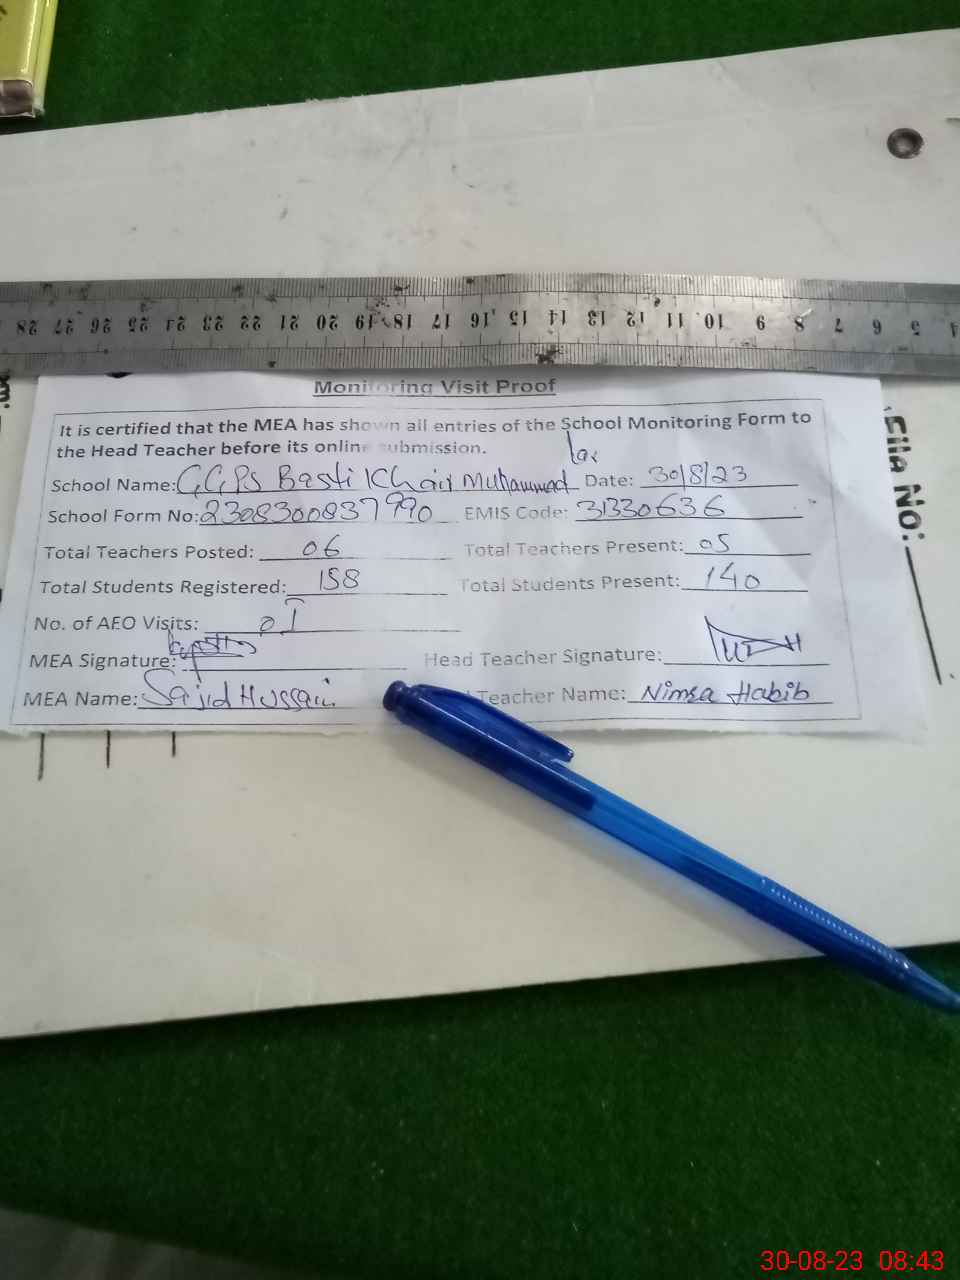 28 27 26 25 24 23 22 21 20 19 18 17 16 15 14 13 12 11 10 9 8 7 6 5 4
Monitoring Visit Proof
It is certified that the MEA has shown all entries of the School Monitoring Form to
the Head Teacher before its online submission.
School Name: GGPS Basti Khair Muhammad Date: 30/8/23
School Form No: 2308300837990 EMIS Code: 31330636
Total Teachers Posted: 06 Total Teachers Present: 05
Total Students Registered: 158 Total Students Present: 140
No. of AEO Visits: 01
MEA Signature: Head Teacher Signature:
MEA Name: Sajid Hussain Teacher Name: Nimra Habib
File No:
30-08-23 08:43